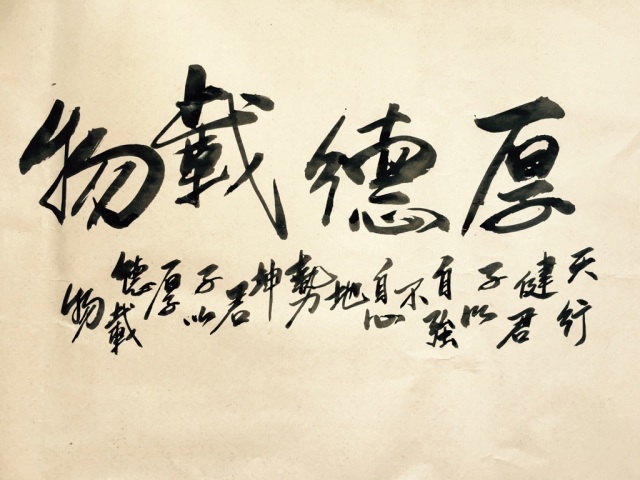 厚德載物
天行
健君
子以
自強
不
息
地
勢
坤
君
子以
厚
德載
物